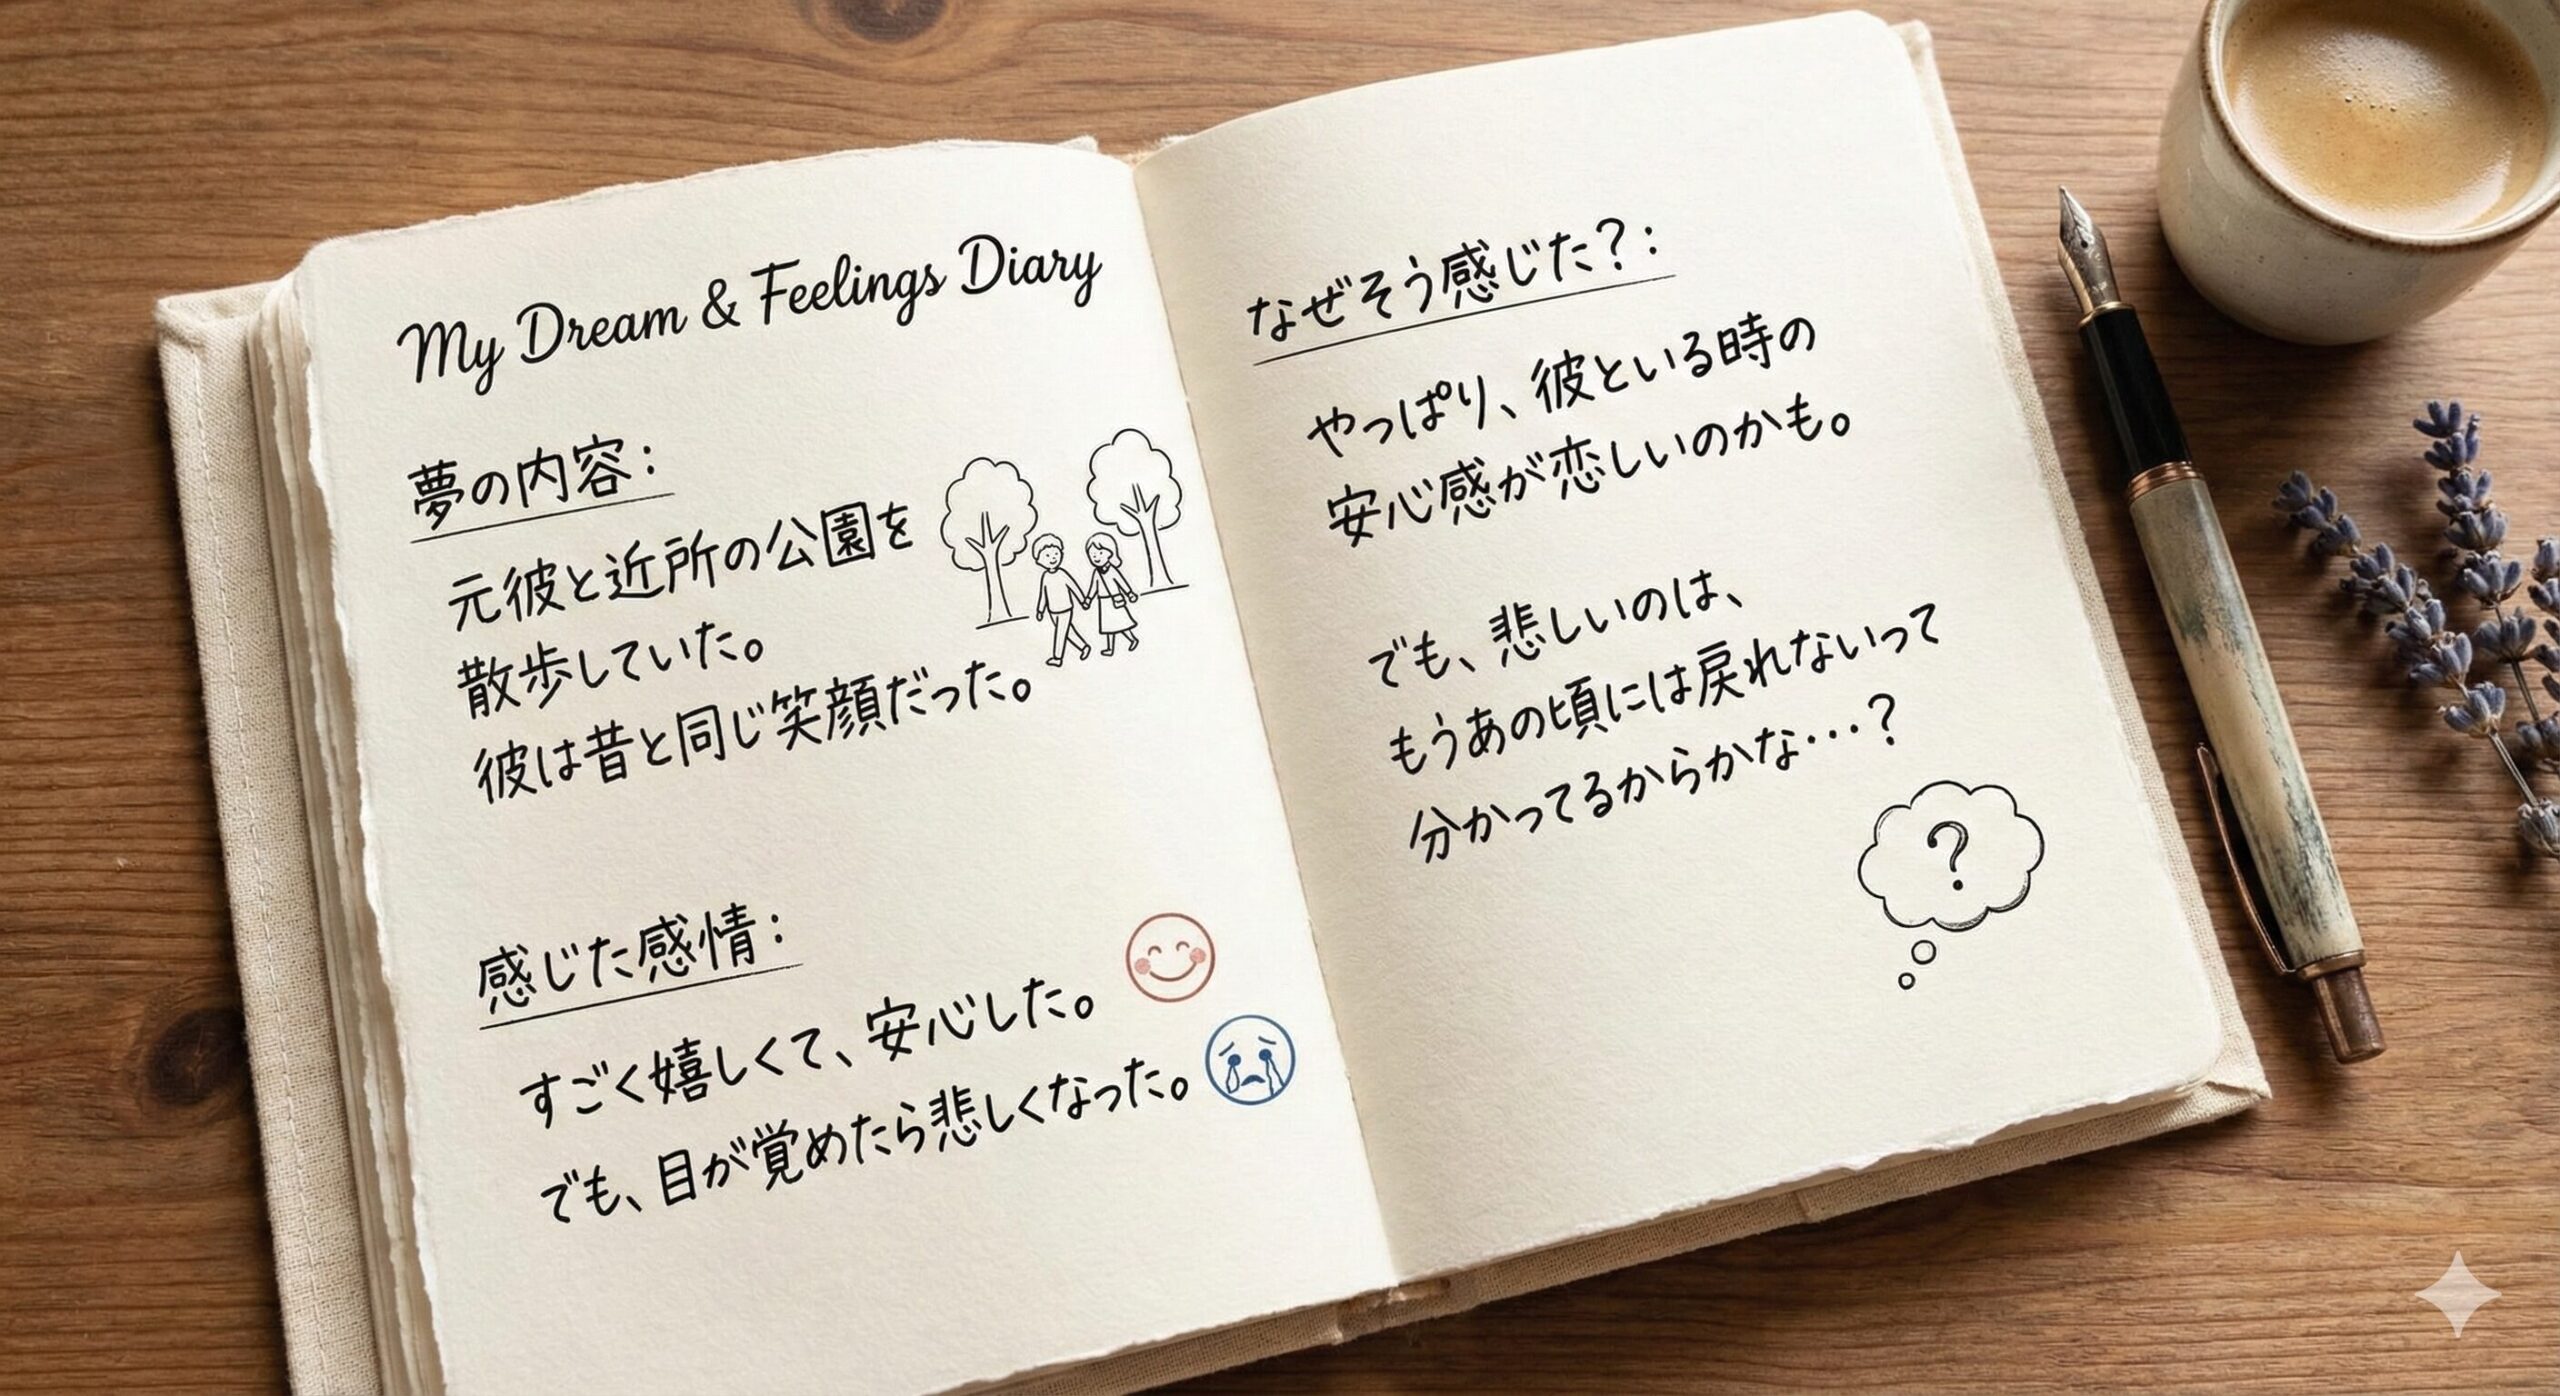 My Dream & Feelings Diary
夢の内容：
元彼と近所の公園を
散歩していた。
彼は昔と同じ笑顔だった。
感じた感情：
すごく嬉しくて、安心した。
でも、目が覚めたら悲しくなった。
なぜそう感じた？：
やっぱり、彼といる時の
安心感が恋しいのかも。
でも、悲しいのは、
もうあの頃には戻れないって
分かってるからかな…？
?